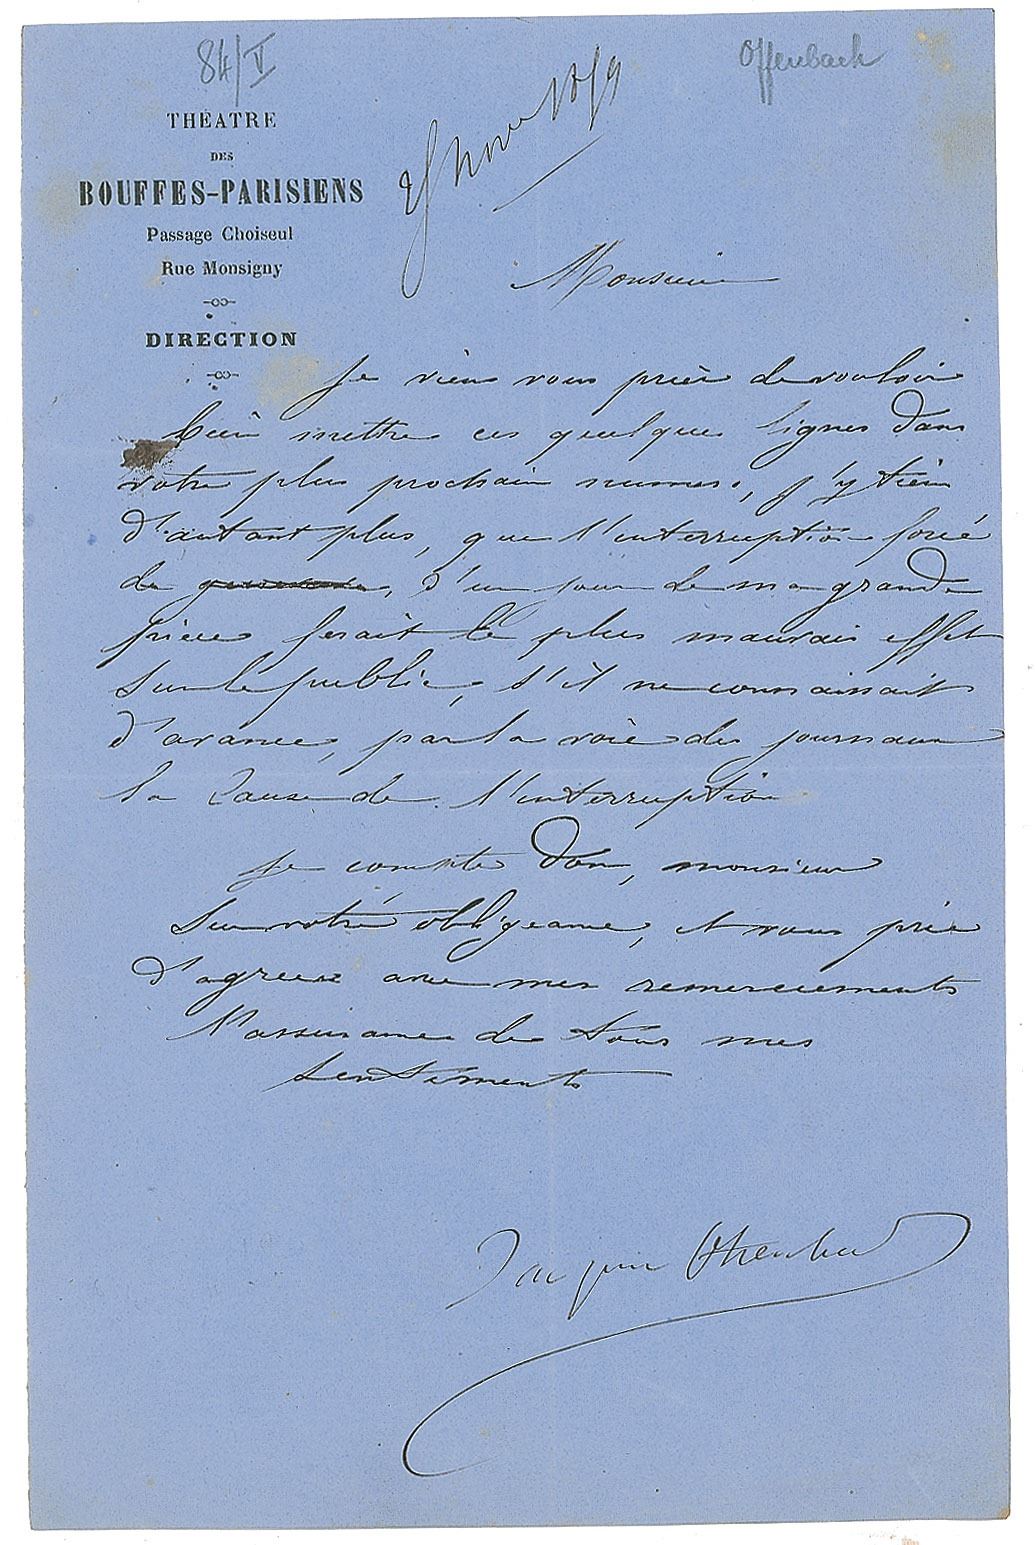 84/V
Offenbach
THÉATRE
DES
BOUFFES-PARISIENS
Passage Choiseul
Rue Monsigny
DIRECTION
Monsieur
je viens vous prier de vouloir
bien mettre ces quelques lignes dans
votre plus prochain numero, j'y tiens
d'autant plus, que l'interruption forcé
de d'un jour de ma grande
pièce ferait le plus mauvais effet
sur le public, s'il ne connaissait
d'avance, par la voie des journaux
la cause de l'interruption
je compte donc, monsieur
sur votre obligeance, et vous prie
d'agreer avec mes remerciements
l'assurance de tous mes
sentiments
Jacques Offenbach